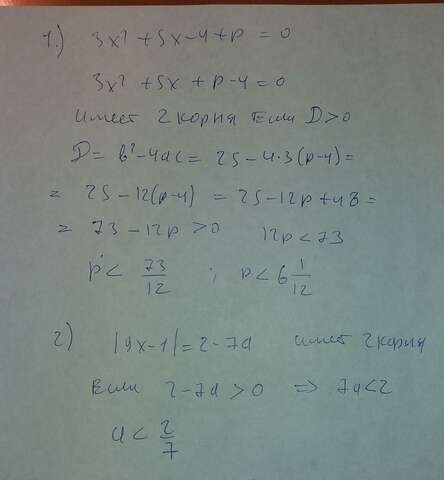 1.) 3x² + 5x - 4 + p = 0
3x² + 5x + p - 4 = 0
имеет 2 корня Если D > 0
D = b² - 4ac = 25 - 4·3(p-4) =
= 25 - 12(p-4) = 25 - 12p + 48 =
= 73 - 12p > 0 12p < 73
p < 73/12 ; p < 6 1/12
2) |9x-1| = 2-7a имеет 2 корня
Если 2-7a > 0 ⇒ 7a < 2
a < 2/7